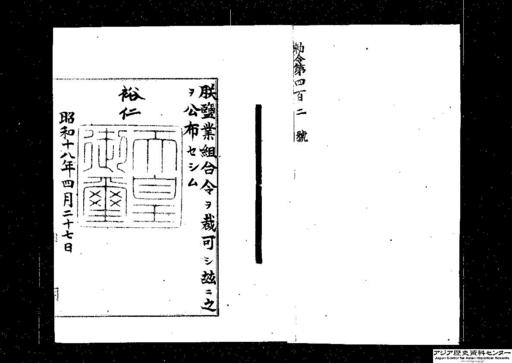 勅令第四百二號
朕鹽業組合令ヲ裁可シ玆ニ之
ヲ公布セシム
裕仁
天皇
御璽
昭和十八年四月二十七日
アジア歴史資料センター
Japan Center for Asian Historical Records